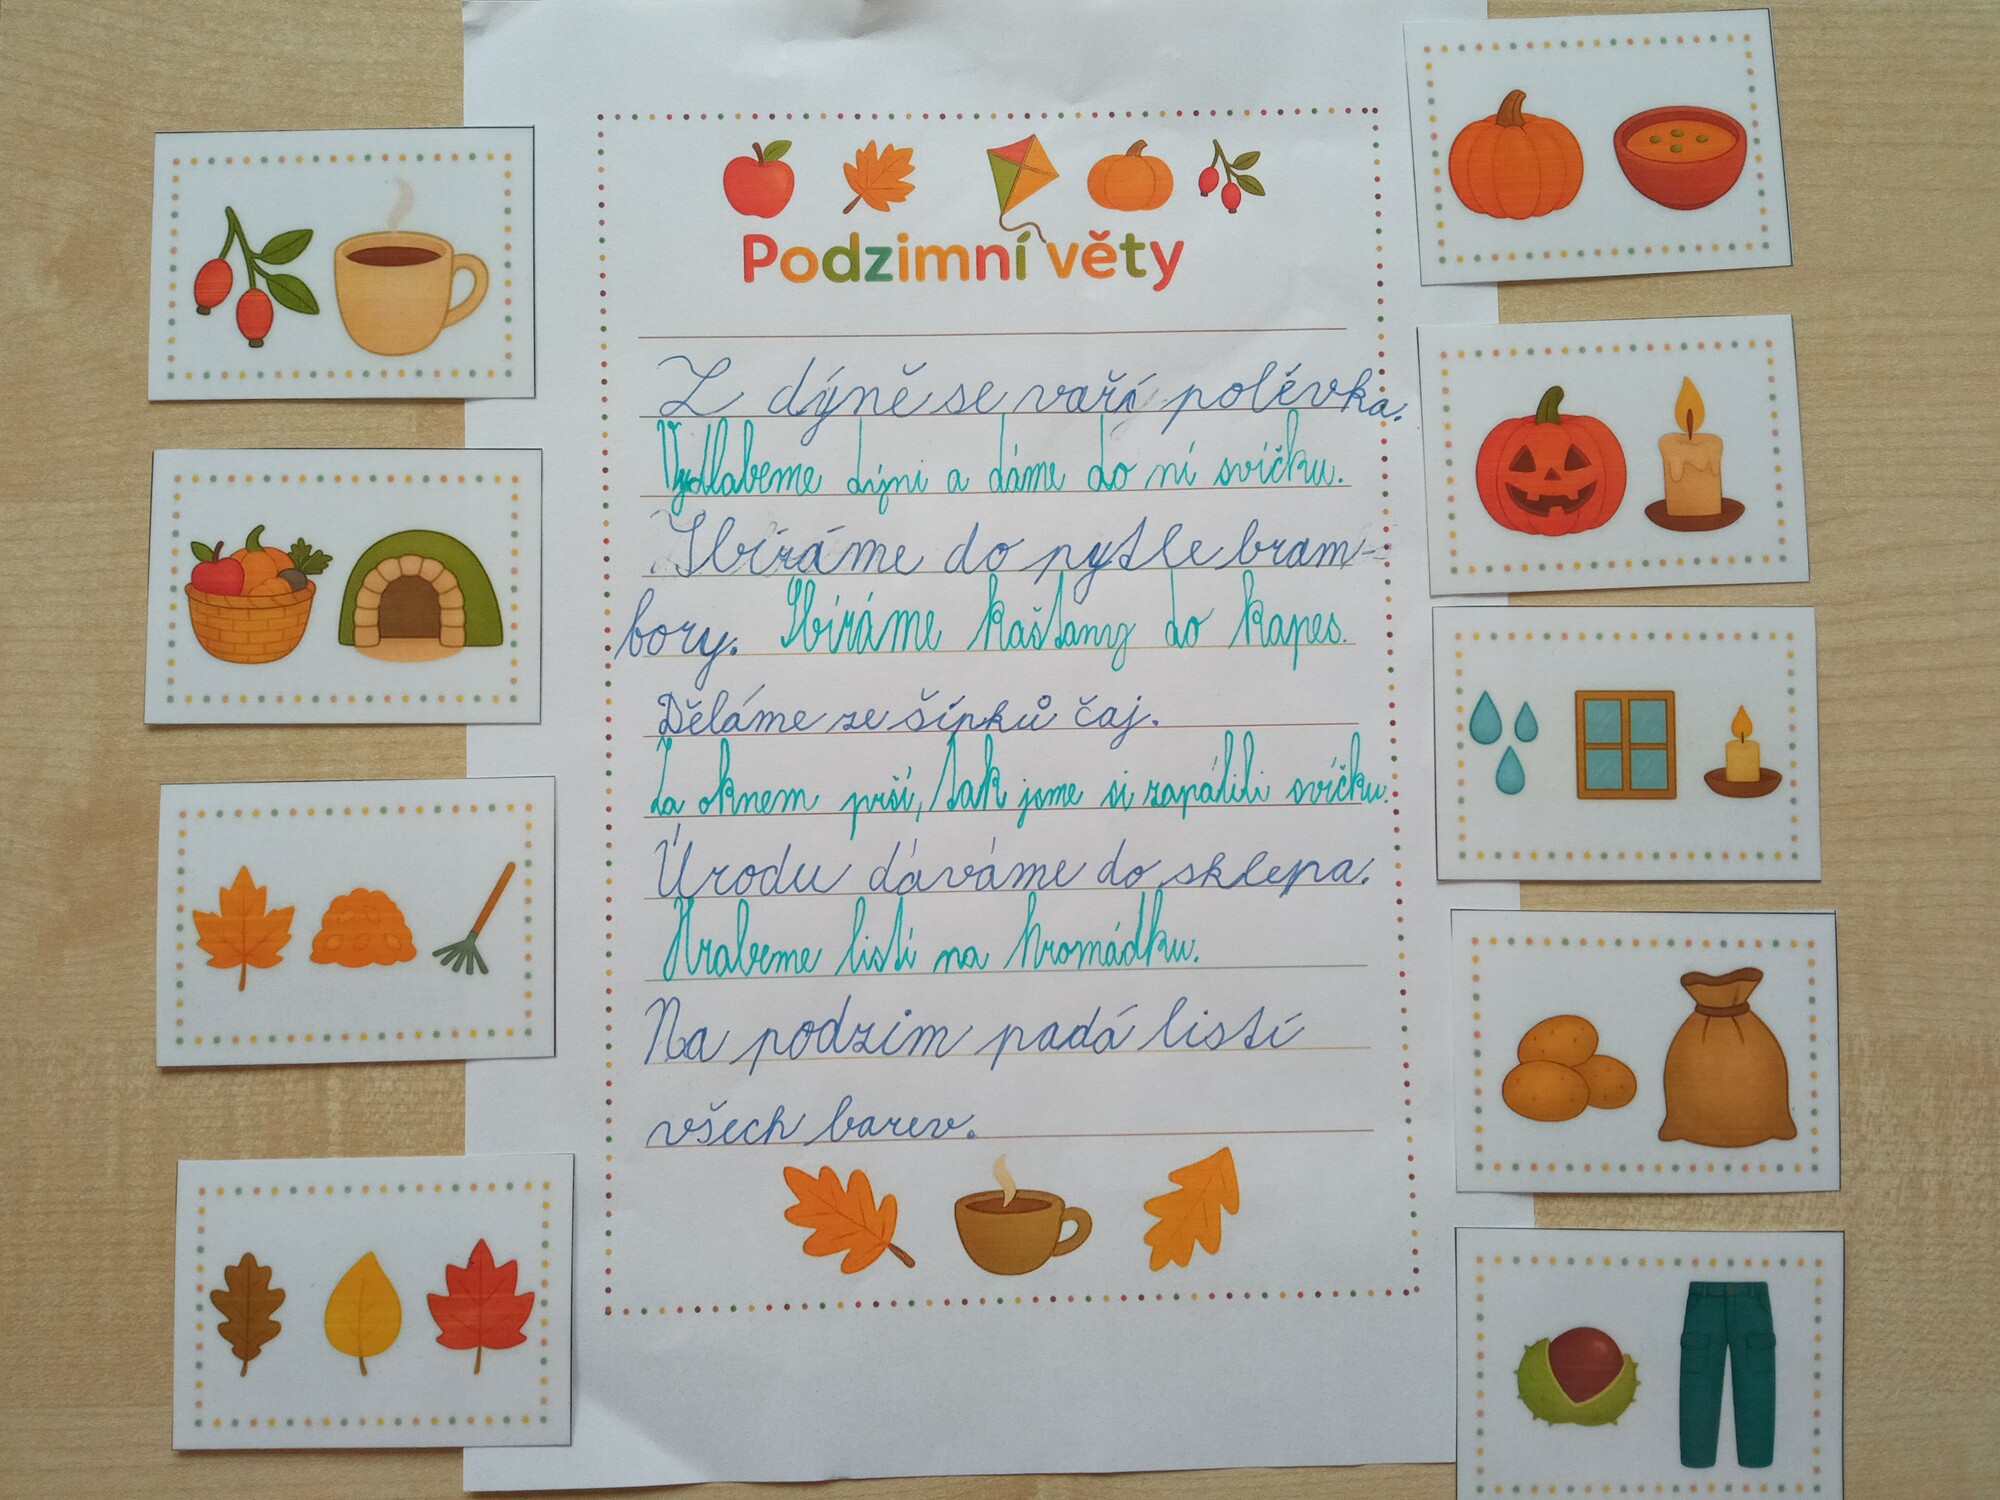 Podzimní věty
Z dýně se vaří polévka.
Vydlabeme dýni a dáme do ní svíčku.
Sbíráme do pytle bram-
bory. Sbíráme kaštany do kapes.
Děláme ze šípků čaj.
Za oknem prší, tak jsme si zapálili svíčku.
Úrodu dáváme do sklepa.
Hrabeme listí na hromádku.
Na podzim padá listí
všech barev.